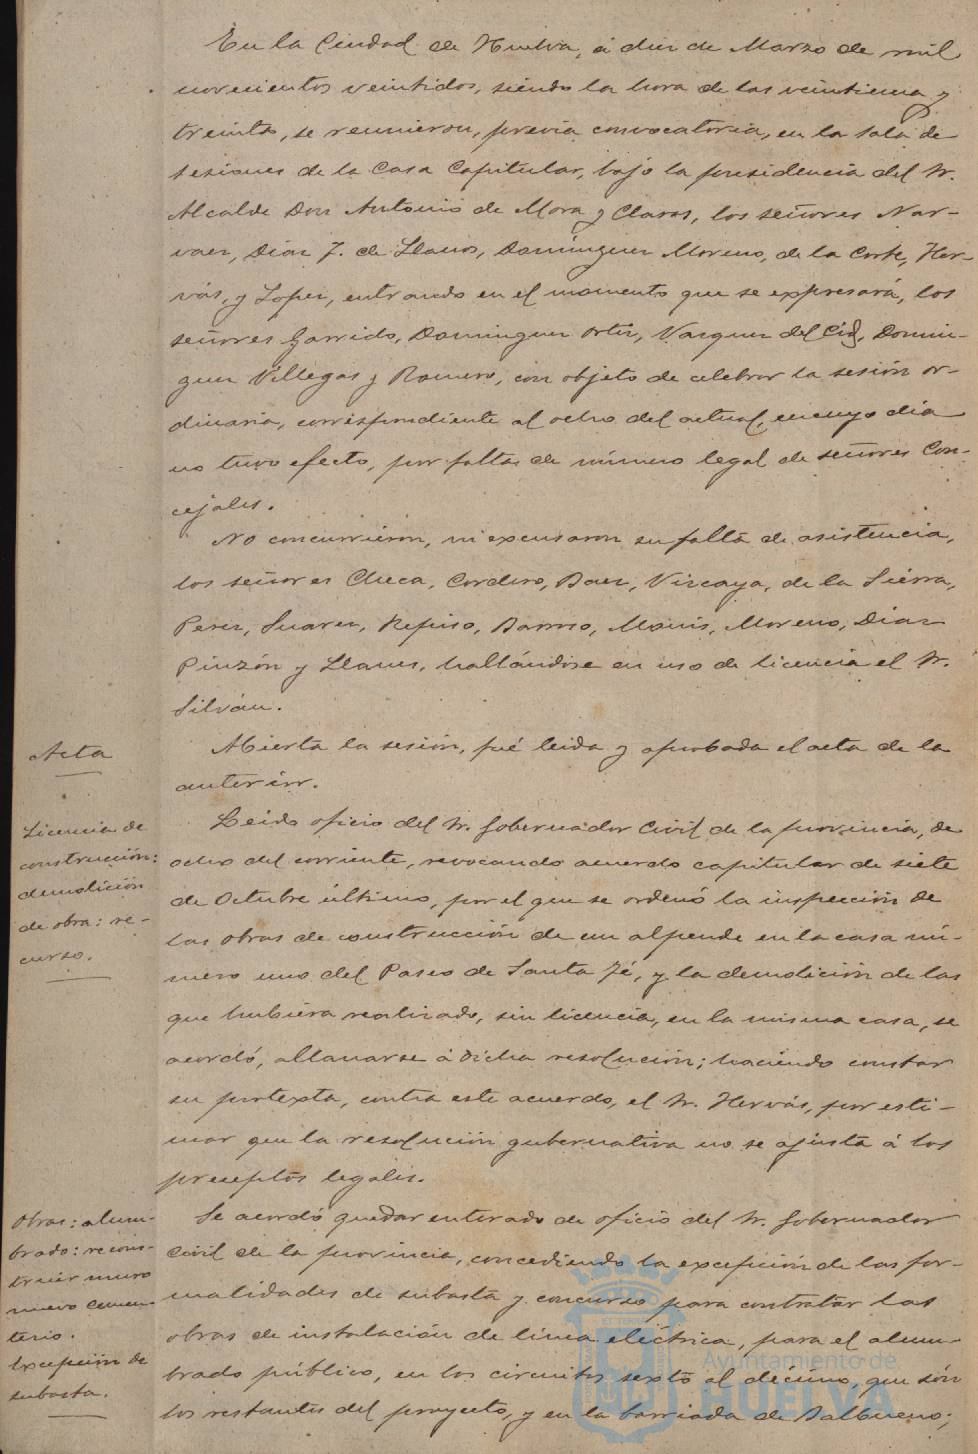 En la Ciudad de Huelva, á diez de Marzo de mil
novecientos veintidos, siendo la hora de las veintiuna y
treinta, se reunieron, previa convocatoria, en la sala de
sesiones de la Casa Capitular, bajo la presidencia del Sr.
Alcalde Don Antonio de Mora y Claros, los señores Nar-
vaez, Diaz F. de Llanos, Domínguez Moreno, de la Corte, Her-
vás, y Lopez, entrando en el momento que se expresará, los
señores Garrido, Dominguez Ortiz, Vazquez del Cid, Domin-
guez Villegas y Romero, con objeto de celebrar la sesión or-
dinaria, correspondiente al ocho del actual, en cuyo día
no tuvo efecto, por falta de número legal de señores Con-
cejales.
No concurrieron, ni excusaron su falta de asistencia,
los señores Checa, Cordero, Baez, Vizcaya, de la Sierra,
Perez, Suarez, Repiso, Barroso, Monís, Moreno, Diaz
Pinzón y Llanes, hallándose en uso de licencia el Sr.
Silván.
Acta
Abierta la sesión, fué leida y aprobada el acta de la
anterior.
Licencia de
construcción:
demolición
de obra: re-
curso.
Leido oficio del Sr. Gobernador Civil de la provincia, de
ocho del corriente, revocando acuerdo capitular de siete
de Octubre último, por el que se ordenó la inspección de
las obras de construcción de un alpende en la casa nú-
mero uno del Paseo de Santa Fé, y la demolición de las
que hubiera realizado, sin licencia, en la misma casa, se
acordó, allanarse á dicha resolución; haciendo constar
su protexta, contra este acuerdo, el Sr. Hervás, por esti-
mar que la resolución gubernativa no se ajusta á los
preceptos legales.
Obras: alum-
brado: recons-
truir muro
nuevo cemen-
terio.
Excepción de
subasta.
Se acordó quedar enterado de oficio del Sr. Gobernador
Civil de la provincia, concediendo la excepción de las for-
malidades de subasta y concurso para contratar las
obras de instalación de línea eléctrica, para el alum-
brado público, en los circuitos sexto al décimo, que són
los restantes del proyecto, y en la barriada de Balbueno;
Ayuntamiento de
HUELVA